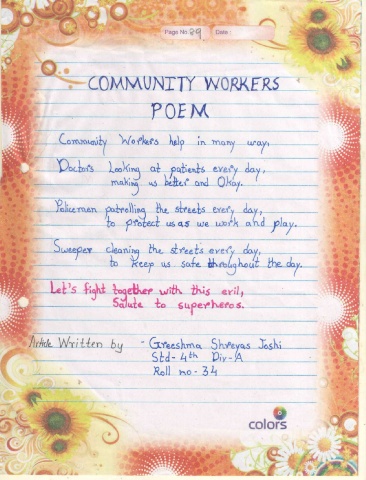 Page No. 89 Date :
COMMUNITY WORKERS
POEM
Community Workers help in many way,
Doctors Looking at patients every day,
making us better and Okay.
Policemen patrolling the streets every day,
to protect us as we work and play.
Sweeper cleaning the streets every day,
to keep us safe throughout the day.
Let's fight together with this evil,
Salute to superheros.
Article Written by - Greeshma Shreyas Joshi
Std- 4th Div-A
Roll no - 34
colors